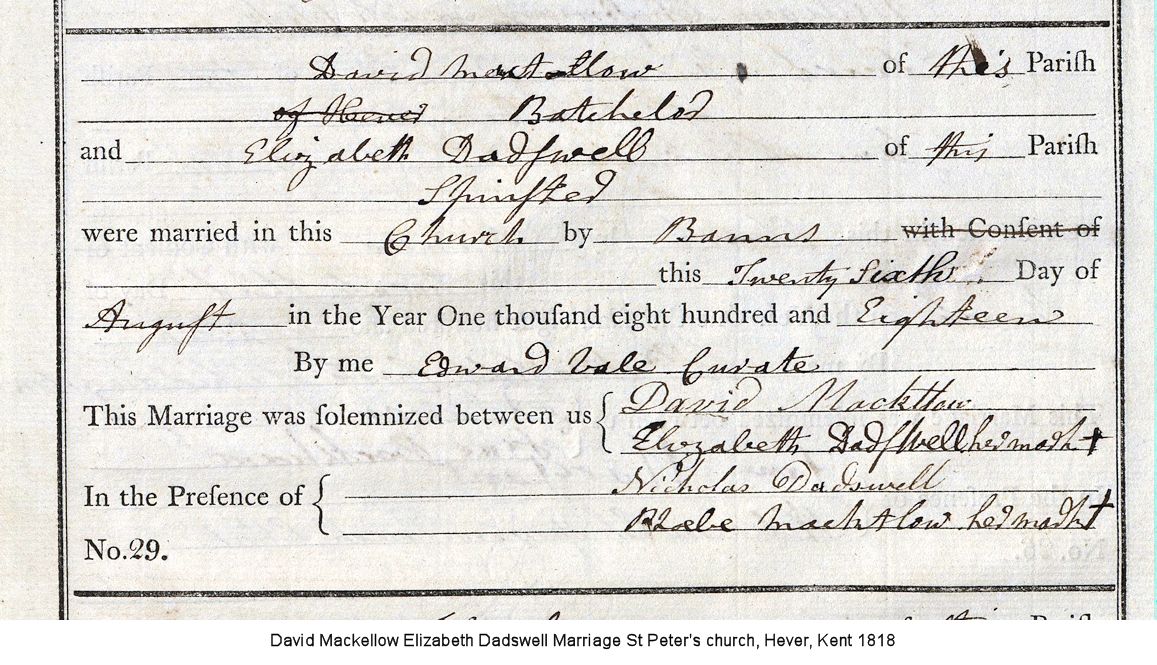 David Macktlow of this Pariſh
of Hever Batchelor
and Elizabeth Dadſwell of this Pariſh
Spinſter
were married in this Church by Banns with Conſent of
this Twenty Sixth Day of
Auguſt in the Year One thouſand eight hundred and Eighteen
By me Edward Vale Curate
This Marriage was ſolemnized between us { David Mackttow
Elizabeth DadſWell her mark +
In the Preſence of { Nicholas Dadswell
Phœbe Macktlow her mark +
No.29.
David Mackellow Elizabeth Dadswell Marriage St Peter's church, Hever, Kent 1818